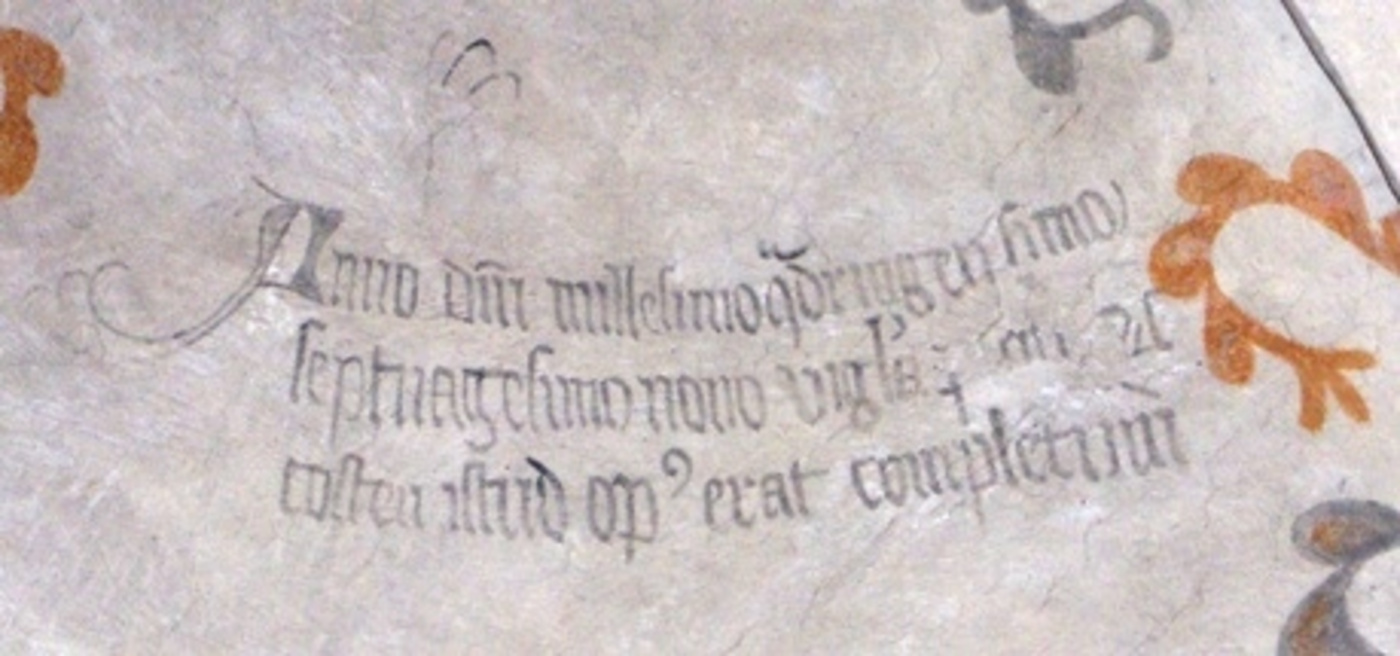 Anno dn̄i millesimo qͣdringentesimo
septuagesimo nono vigl'
costen istud opꝰ erat completum